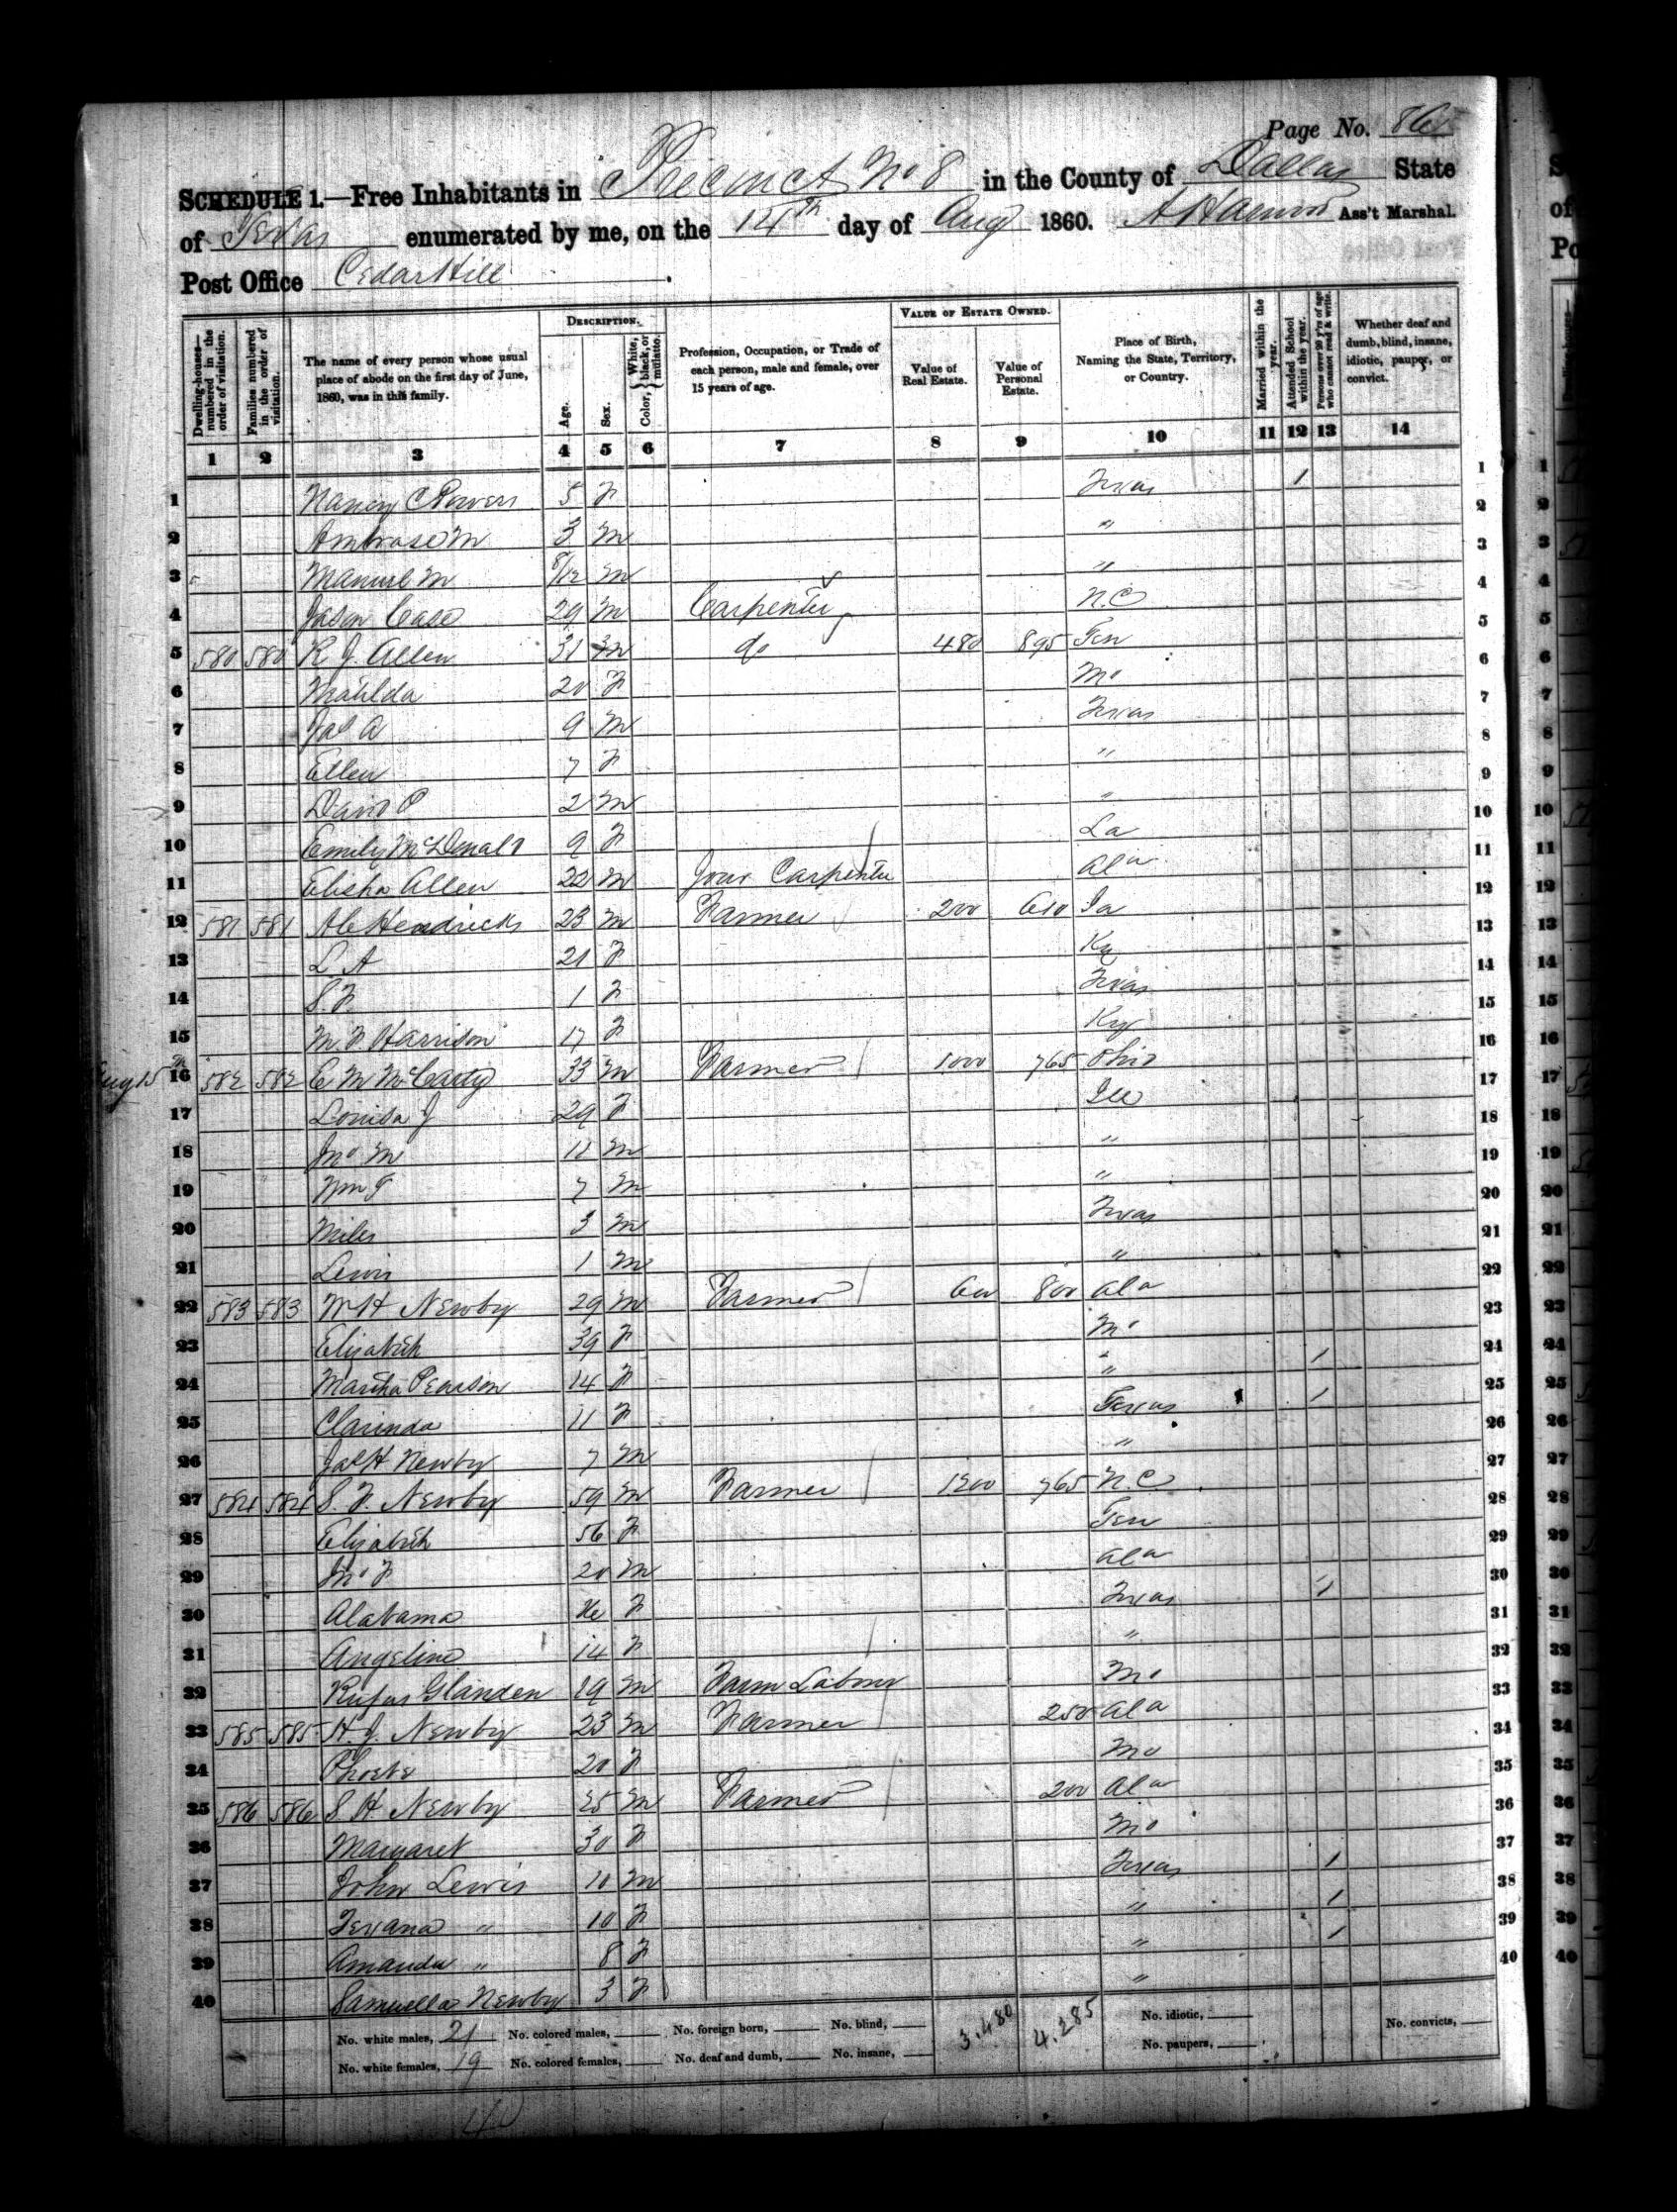 Page No. 86
SCHEDULE 1.—Free Inhabitants in Precinct No 8 in the County of Dallas State
of Texas enumerated by me, on the 14th day of Aug 1860. Ass't Marshal.
Post Office Cedar Hill.
Dwelling-houses—numbered in the order of visitation.
Families numbered in the order of visitation.
The name of every person whose usual place of abode on the first day of June, 1860, was in this family.
DESCRIPTION.
Age.
Sex.
Color, { White, black, or mulatto.
Profession, Occupation, or Trade of each person, male and female, over 15 years of age.
VALUE OF ESTATE OWNED.
Value of Real Estate.
Value of Personal Estate.
Place of Birth, Naming the State, Territory, or Country.
Married within the year.
Attended School within the year.
Persons over 20 y'rs of age who cannot read & write.
Whether deaf and dumb, blind, insane, idiotic, pauper, or convict.
1 2 3 4 5 6 7 8 9 10 11 12 13 14
1 Nancy C Powers 5 F Texas 1 1
2 Ambrose M 3 M " 2
3 Manuel M 8/12 M " 3
4 Jason Case 29 M Carpenter N.C 4
5 580 580 R J. Allen 31 M do 480 895 Ten 5
6 Matilda 20 F Mo 6
7 Jas A 9 M Texas 7
8 Ellen 7 F " 8
9 David P 2 M " 9
10 Emily McDonald 9 F La 10
11 Elisha Allen 22 M Jour Carpenter Ala 11
12 581 581 Hendricks 23 M Farmer 200 610 Ia 12
13 L A 21 F Ky 13
14 S. F. 1 F Texas 14
15 M. F Harrison 17 F Ky 15
Aug 15th 16 582 582 C M McCarty 33 M Farmer 1000 765 Ohio 16
17 Louisa J 29 F Ill 17
18 Jno M 11 M " 18
19 Wm T 7 M " 19
20 Miles 3 M Texas 20
21 Lewis 1 M " 21
22 583 583 W H Newby 29 M Farmer 600 800 Ala 22
23 Elisabeth 39 F Mo 23
24 Martha Pearson 14 F " 1 24
25 Clarinda 11 F Texas 1 25
26 Jas H Newby 7 M " 26
27 584 584 S. F. Newby 59 M Farmer 1200 765 N.C 27
28 Elisabeth 56 F Ten 28
29 Jno F 20 M Ala 29
30 Alabama 16 F Texas 1 30
31 Angeline 14 F " 31
32 Rufus Glanden 19 M Farm Laborer Mo 32
33 585 585 H. J. Newby 23 M Farmer 250 Ala 33
34 Phoebe 20 F Mo 34
35 586 586 S H Newby 25 M Farmer 200 Ala 35
36 Margaret 30 F Mo 36
37 John Lewis 10 M Texas 1 37
38 Texana " 10 F " 1 38
39 Amanda " 8 F " 1 39
40 Samuella Newby 3 F " 40
No. white males, 21 No. colored males, No. foreign born, No. blind, 3.480 4.285 No. idiotic, No. convicts,
No. white females, 19 No. colored females, No. deaf and dumb, No. insane, No. paupers,